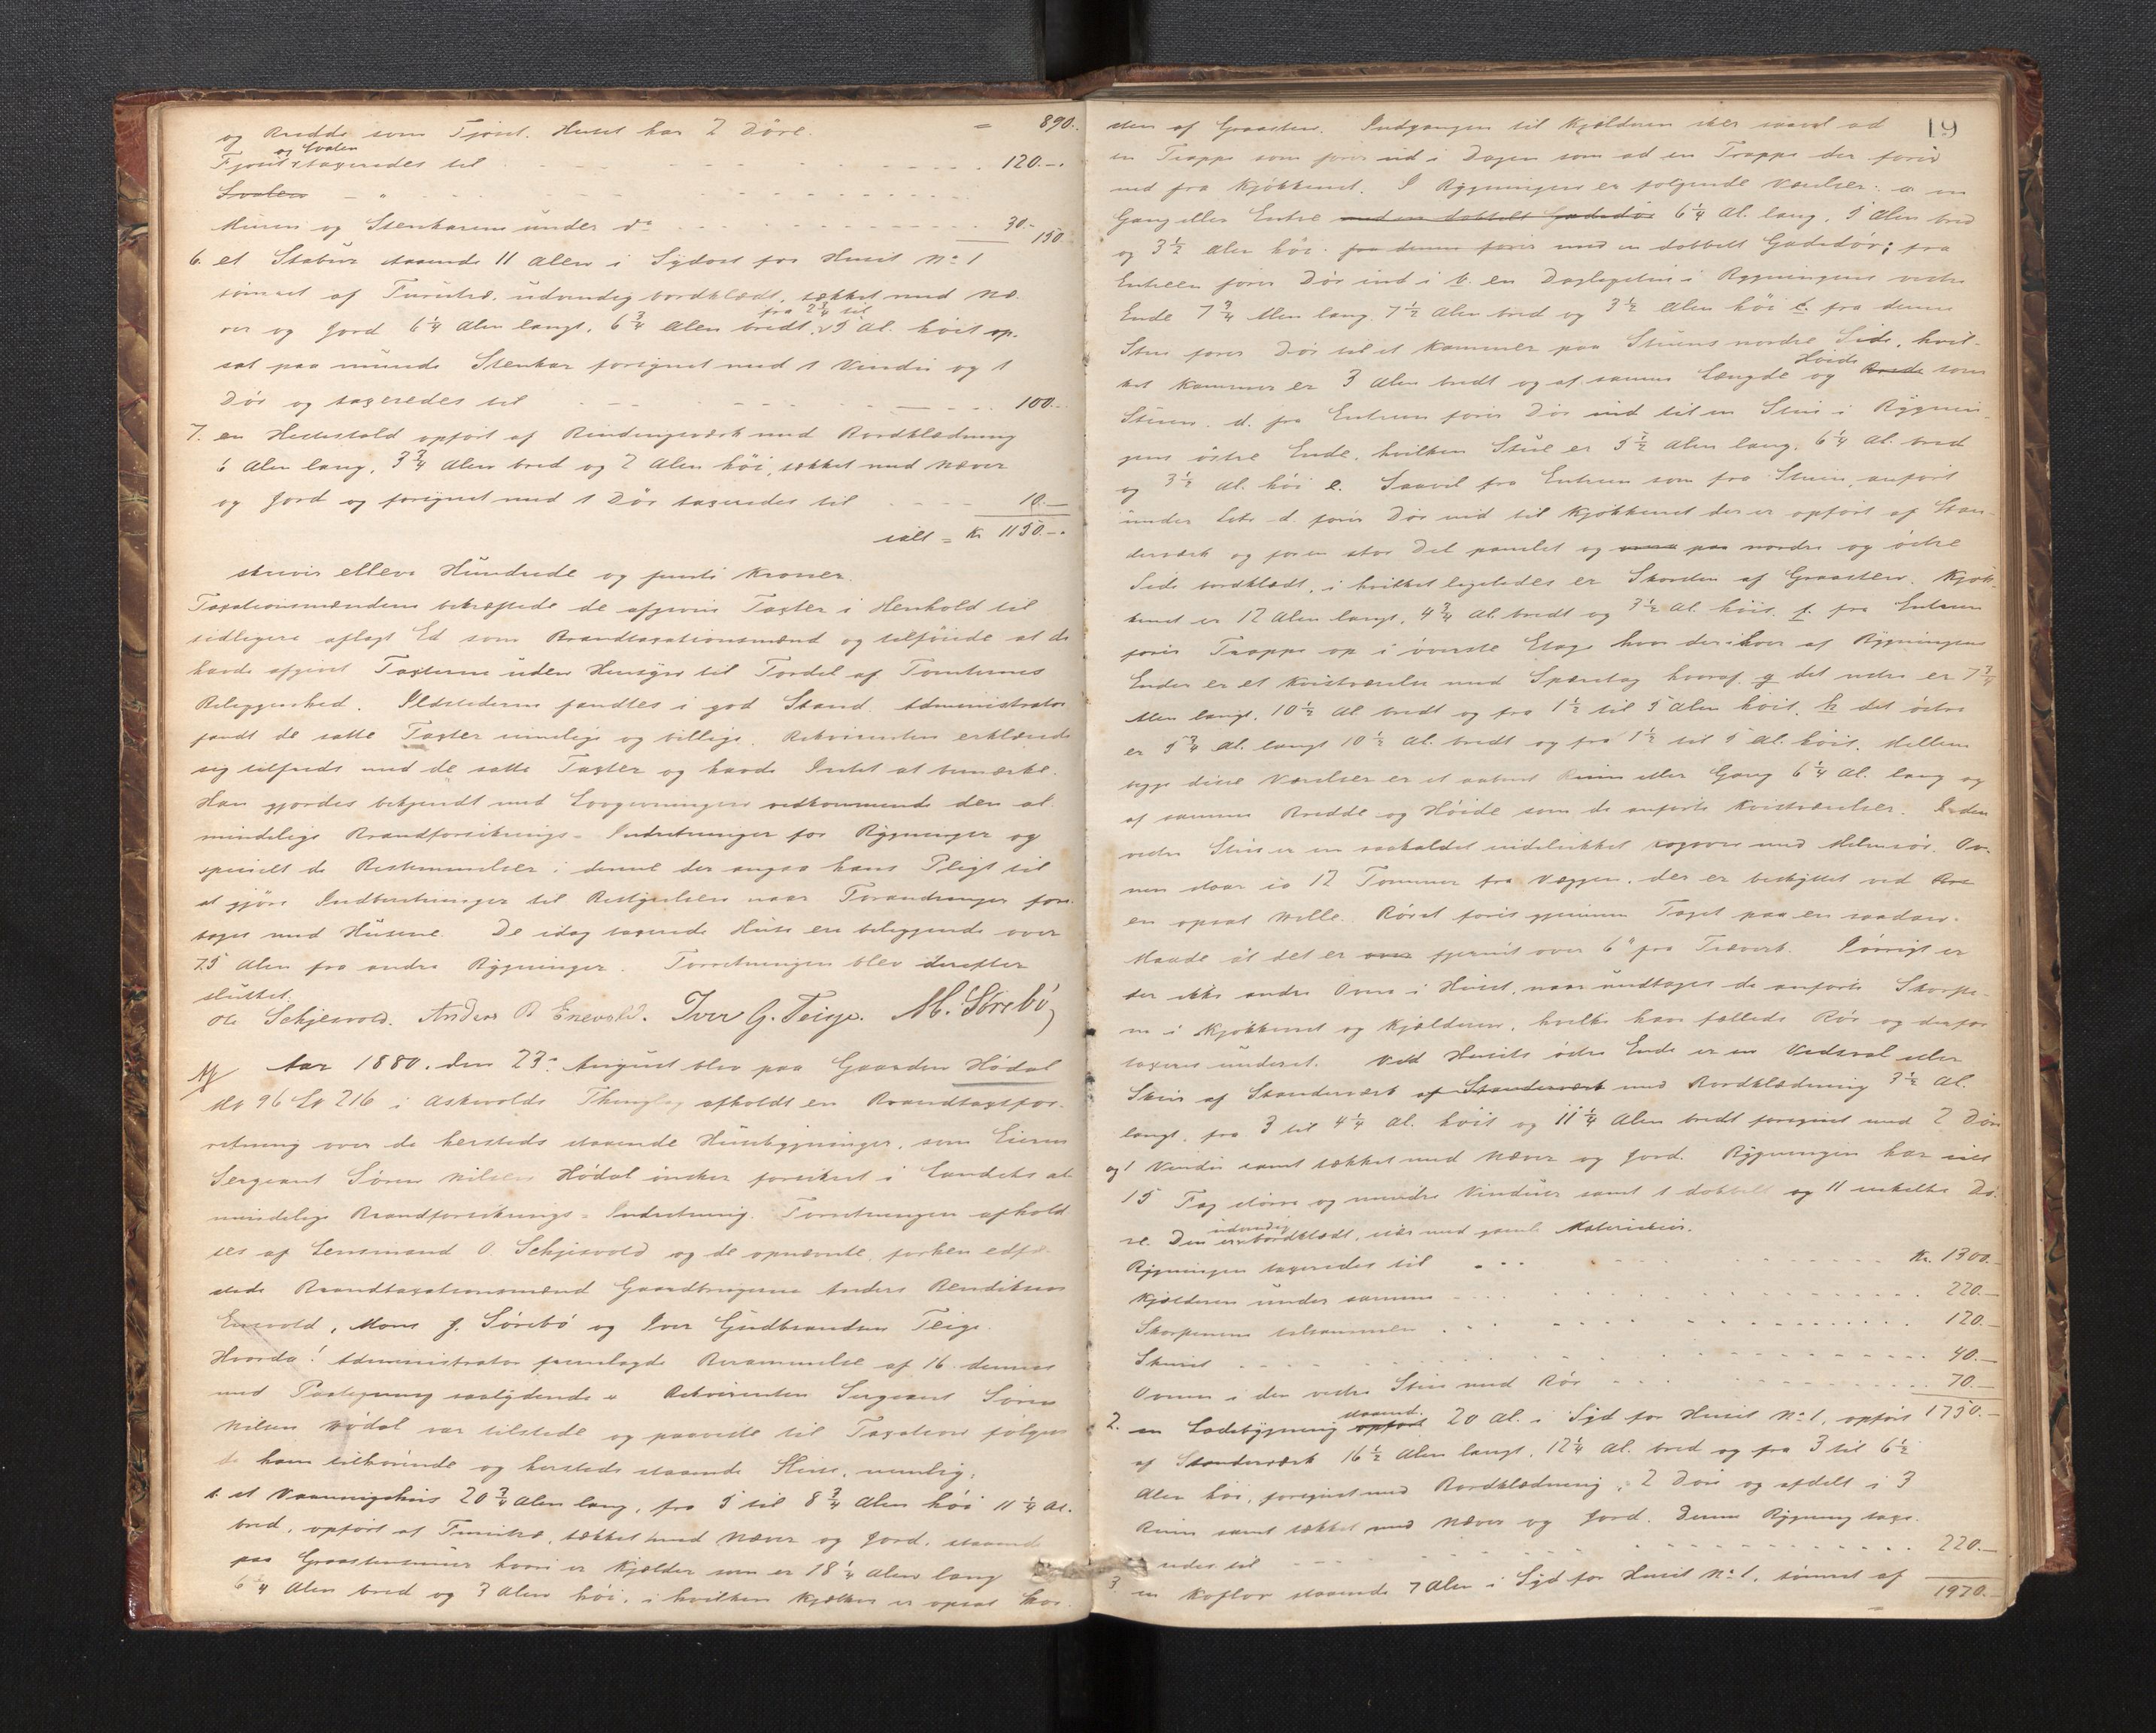 og Bredde som Fjöset. Huset har 2 Döre. = 890.
og Svalen
Fjöset taxeredes til 120.-
Svalen - "
Muren og Stenkarene under do 30.- 150
6. et Stabur staaende 11 Alen i Sydost for Huset No 1
tömret af Furutræ, udvendig bordklædt, tækket med Næ-
fra 2 3/4 til
ver og Jord 6 1/4 Alen langt, 6 3/4 Alen bredt, 5 Al. höit op-
sat paa murede Stenkar forsynet med 1 Vindu og 1
Dör og taxeredes til 100.-
7. en Hestestald opfört af Bindingsværk med Bordklædning
6 Alen lang, 3 3/4 Alen bred og 2 Alen höi, tækket med Næver
og Jord og forsynet med 1 Dör taxeredes til 10.-
ialt = Kr 1150.-
skriver elleve Hundrede og femti Kroner.
Taxationsmændene bekræftede de afgivne Taxter i Henhold til
tidligere aflagt Ed som Brandtaxationsmænd og tilföiede at de
havde afgivet Taxterne uden Hensyn til Fordel af Tomternes
Beliggenhed. Ildstederne fandtes i god Stand. Administrator
fandt de satte Taxter rimelige og billige. Rekvirenten erklærede
sig tilfreds med de satte Taxter og havde Intet at bemærke.
Han gjordes bekjendt med Lovgivningen vedkommende den al-
mindelige Brandforsikrings-Indretninger for Bygninger og
specielt de Bestemmelser i denne der angaa hans Pligt til
at gjöre Indberetninger til Bestyrelsen naar Forandringer fore-
tages med Husene. De idag taxerede Huse ere beliggende over
75 Alen fra andre Bygninger. Forretningen blev derefter
sluttet.
Ole Schjesvold. Anders B Enevold. Iver G. Teige. M. Sörebö
Aar 1880. den 23de August blev paa Gaarden Hödal
Mn 96 Lr 216 i Askevolds Thinglag afholdt en Brandtaxtfor-
retning over de hersteds staaende Husebygninger, som Eieren
Sergeant Sören Nilsen Hödal önsker forsikret i Landets al-
mindelige Brandforsikrings-Indretning. Forretningen afhold-
tes af Lensmand O. Schjesvold og de opnævnte, forhen edfæ-
stede Brandtaxationsmænd Gaardbrugerne Anders Bendiksen
Enevold, Mons J. Sörebö og Iver Gudbrandsen Teige.
Hvorda! Administrator fremlagde Berammelse af 16 dennes
med Paategning saalydende Rekvirenten Sergeant Sören
Nilsen Hödal var tilstede og paaviste til Taxation fölgen-
de ham tilhörende og hersteds staaende Huse, nemlig:
1. et Vaaningshus 20 3/4 Alen lang, fra 5 til 8 3/4 Alen höi 11 1/4 Al.
bred, opfört af Furutræ, tækket med Næver og Jord, staaende
paa Graastensmur hvori er Kjælder som er 18 1/4 Alen lang
6 1/4 Alen bred og 3 Alen höi, i hvilken Kjælder er opsat Skor-
19
sten af Graasten. Indgangen til Kjælderen sker saavel ad
en Trappe som förer ud i Dagen som ad en Trappe der förer
ned fra Kjökkenet. I Bygningen er fölgende Værelser: a en
Gang eller Entre med en dobbelt Gadedör 6 1/4 Al. lang, 5 Alen bred
og 3 1/2 Alen höi. fra denne förer med en dobbelt Gadedör; fra
Entreen förer Dör ind i b. en Dagligstue i Bygningens vestre
Ende 7 3/4 Alen lang 7 1/2 Alen bred og 3 1/2 Alen höi c. fra denne
Stue förer Dör til et Kammer paa Stuens nordre Side, hvil-
Höide
ket Kammer er 3 Alen bredt og af samme Længde og Brede som
Stuen. d. fra Entreen förer Dör ind til en Stue i Bygnin-
gens östre Ende, hvilken Stue er 5 1/2 Alen lang, 6 1/4 Al. bred
og 3 1/2 Al. höi e. Saavel fra Entreen som fra Stuen, anfört
under Litr d. förer Dör ind til Kjökkenet der er opfört af Stan-
derværk og for en stor Del panelet og paa nordre og östre
Side bordklædt, i hvilket ligeledes er Skorsten af Graasten. Kjök-
kenet er 12 Alen langt, 4 3/4 Al. bredt og 3 1/2 Al. höit. f. fra Entreen
förer Trappe op i överste Etage hvor der i hver af Bygningens
Ender er et Kvistværelse med Sparetag hvoraf g det vestre er 7 3/4
Alen langt, 10 1/2 Al bredt og fra 1 1/2 til 5 Alen höit, h det östre
er 5 3/4 Al. langt 10 1/2 Al. bredt og fra 1 1/2 til 5 Al. höit. Mellem
begge disse Værelser er et aabent Rum eller Gang 6 1/4 Al. lang og
af samme Bredde og Höide som de anförte Kvistværelser. I den
vestre Stue er en saakaldet Kogeovn med Ov-
nen staar ca 12 Tommer fra Væggen, der er beskyttet ved
en opsat Helle. Röret föres gjennem Taget paa en saadan
Maade at det er fjernet over 6" fra Træverk. Iövrigt er
der ikke andre Ovne i Huset, naar undtages de anförte Skorste-
ne i Kjökkenet og Kjælderen, hvilke have fælleds Rör og derfor
taxeres underet. Ved Husets östre Ende er en Vedsval eller
Skur af Standerværk af Standerværk med Bordklædning 3 1/2 Al.
langt, fra 3 til 4 1/4 Al. höit og 11 1/4 Alen bredt forsynet med 2 Döre
og 1 Vindu samt tækket med Næver og Jord. Bygningen har ialt
15 Fag större og mindre Vinduer samt 1 dobbelt og 11 enkelte Dö-
udvendig
re. Den er bordklædt, især med gamle Materialier.
Bygningen taxeredes til Kr. 1300.-
Kjælderen under samme 220.-
Skorstenene tilsammen 120.-
Skuret 40.-
Ovnen i den vestre Stue med Rör 70.-
staaend.
2. en Ladebygning opfört 20 Al. i Syd for Huset No 1, opfört 1750.-
af Standerværk 16 1/2 Alen langt, 12 1/4 Al. bred og fra 3 til 6 1/2
Alen höi, forsynet med Bordklædning, 2 Döre og afdelt i 3
Rum samt tækket med Næver og Jord. Denne Bygning taxe-
redes til 220.-
3. en Koflor staaende 7 Alen i Syd for Huset No 1, tömret af
= 1970.-